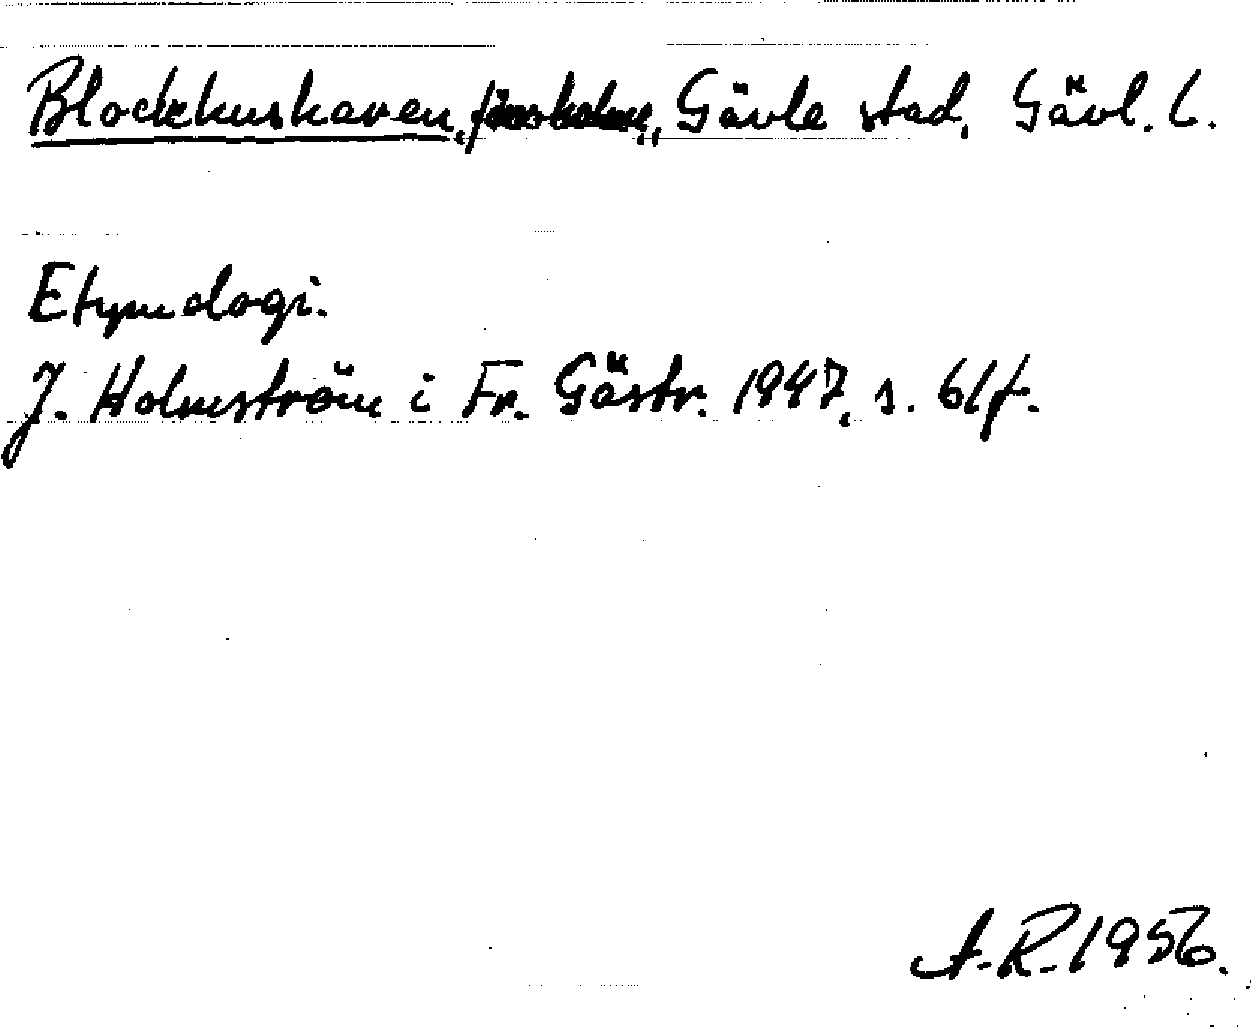 Blockhushaven, Gävle stad, Gävl. l.
Etymologi.
J. Holmström i Fr. Gästr. 1947, s. 61f.
A.R. 1956.